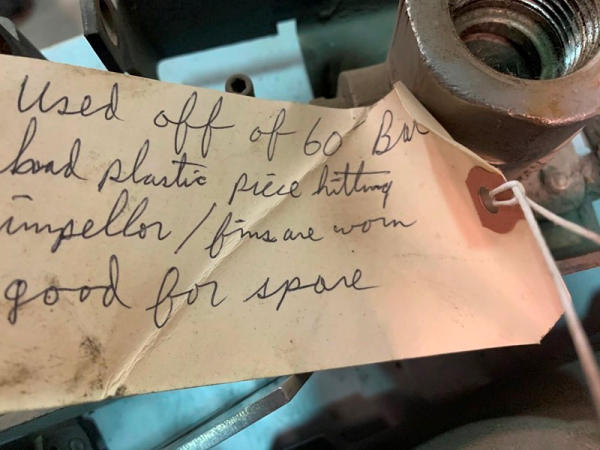 Used off of 60 Bar
had plastic piece hitting
impellor / fins are worn
good for spare